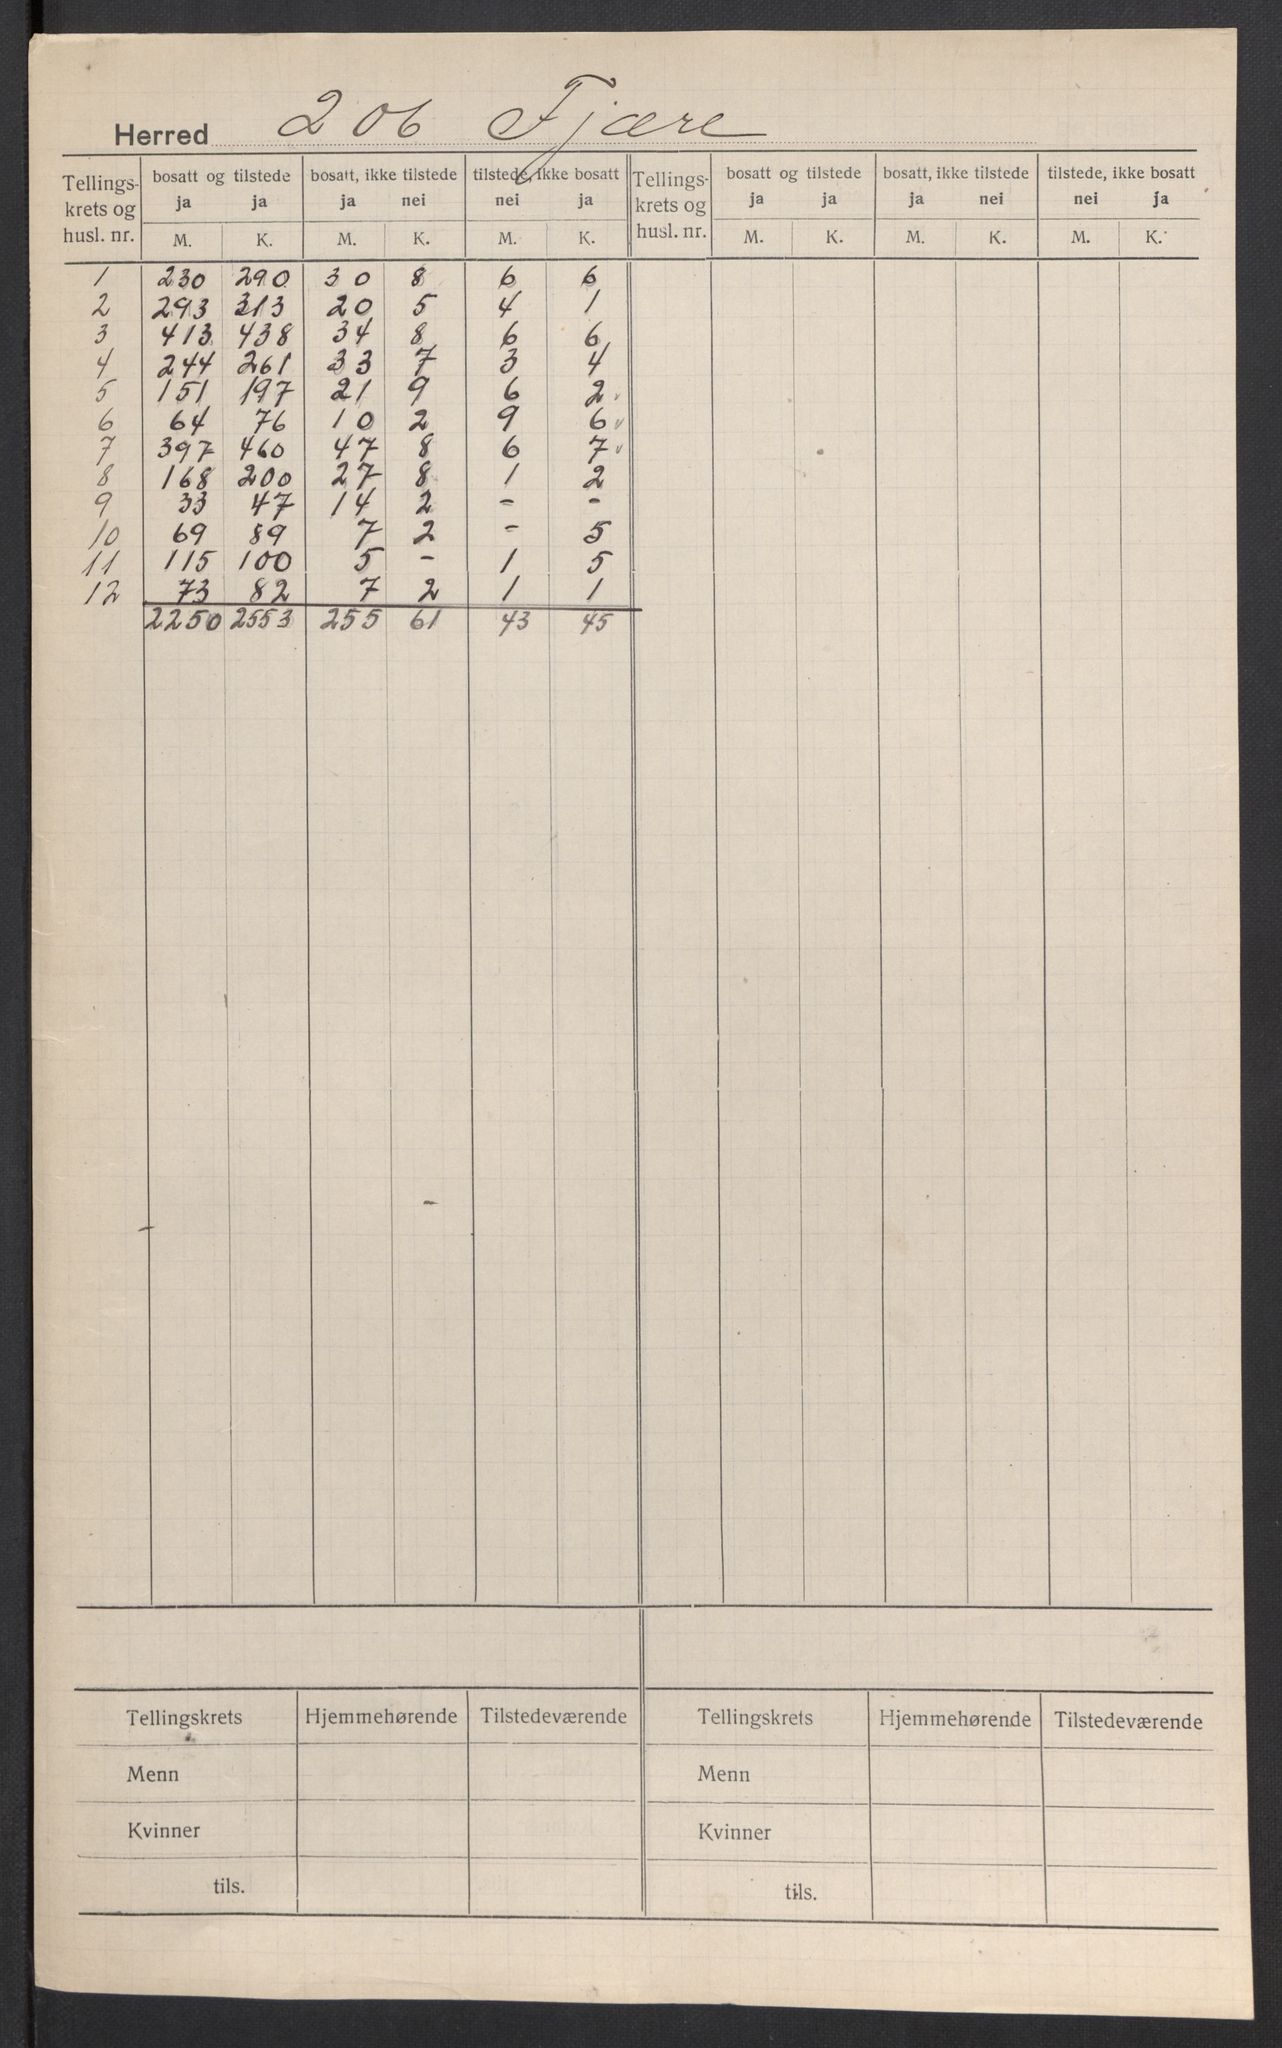 Herred 206 Fjære
Tellings-krets og husl. nr. | bosatt og tilstede | bosatt, ikke tilstede | tilstede, ikke bosatt | Tellings-krets og husl. nr. | bosatt og tilstede | bosatt, ikke tilstede | tilstede, ikke bosatt
ja ja ja nei nei ja ja ja ja nei nei ja
M. K. M. K. M. K. M. K. M. K. M. K.
1 230 290 30 8 6 6
2 293 313 20 5 4 1
3 413 438 34 8 6 6
4 244 261 33 7 3 4
5 151 197 21 9 6 2
6 64 76 10 2 9 6
7 397 460 47 8 6 7
8 168 200 27 8 1 2
9 33 47 14 2 - -
10 69 89 7 2 - 5
11 115 100 5 - 1 5
12 73 82 7 2 1 1
2250 2553 255 61 43 45
Tellingskrets Hjemmehørende Tilstedeværende Tellingskrets Hjemmehørende Tilstedeværende
Menn Menn
Kvinner Kvinner
tils. tils.